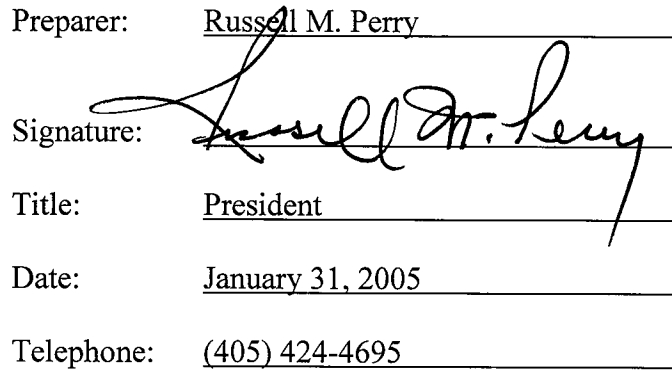 Preparer: Russell M. Perry
Signature: Russell M. Perry
Title: President
Date: January 31, 2005
Telephone: (405) 424-4695